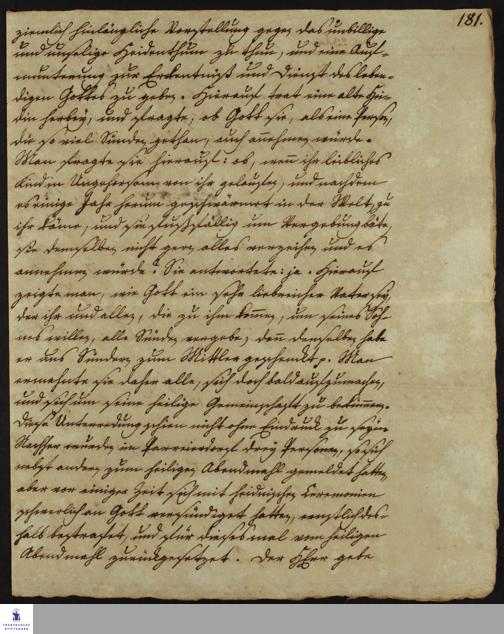 181.
ziemlich hinlängliche Vorstellung gegen das unbillige
und unselige Heidenthum zu thun, und eine Auf-
munterung zur Erkentniß und Dienst des leben-
digen Gottes zu geben. Hierauf trat eine alte Hei-
din herbey, und fragte, ob Gott sie, als eine Person,
die so viel Sünden gethan, auch annehmen würde.
Man fragte sie hierauf: ob, wenn ihr leibliches
Kind in Ungehorsam von ihr gelaufen, und nachdem
es einige Jahr herum geschwärmet in der Welt, zu
ihr käme, und sie fußfällig um Vergebung bäte,
sie demselben nicht gern alles verzeihen und es
annehmen würde? Sie antwortete: ja. Hierauf
zeigte man, wie Gott ein sehr liebreicher Vater sey,
der ihr und allen, die zu ihm kommen, um seines Soh-
nes willen, alle Sünden vergebe; denn denselben habe
er uns Sündern zum Mittler geschenkt p. Man
ermahnte sie daher alle, sich doch bald aufzumachen,
und sich um seine heilige Gemeinschaft zu bekümmern.
Diese Unterredung schien nicht ohne Eindruck zu seyn.
Nachher wurden in Parreierdorf drey Personen, so sich
nebst andern zum heiligen Abendmahl gemeldet hatten,
aber vor einiger Zeit sich mit heidnischen Ceremonien
schwerlich an Gott versündiget hatten, ernstlich des-
halb bestrafet, und für dieses mal vom heiligen
Abendmahl zurückgesetzet. Der HErr gebe
FRANCKESCHE
STIFTUNGEN